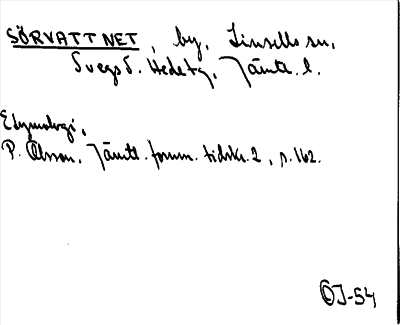 SÖRVATTNET, by, Linsells sn,
Svegs d. Hede tg, Jämtl. l.
Etymologi,
P. Olsson, Jämtl. fornm. tidskr. 2, s. 162.
ÖJ-54